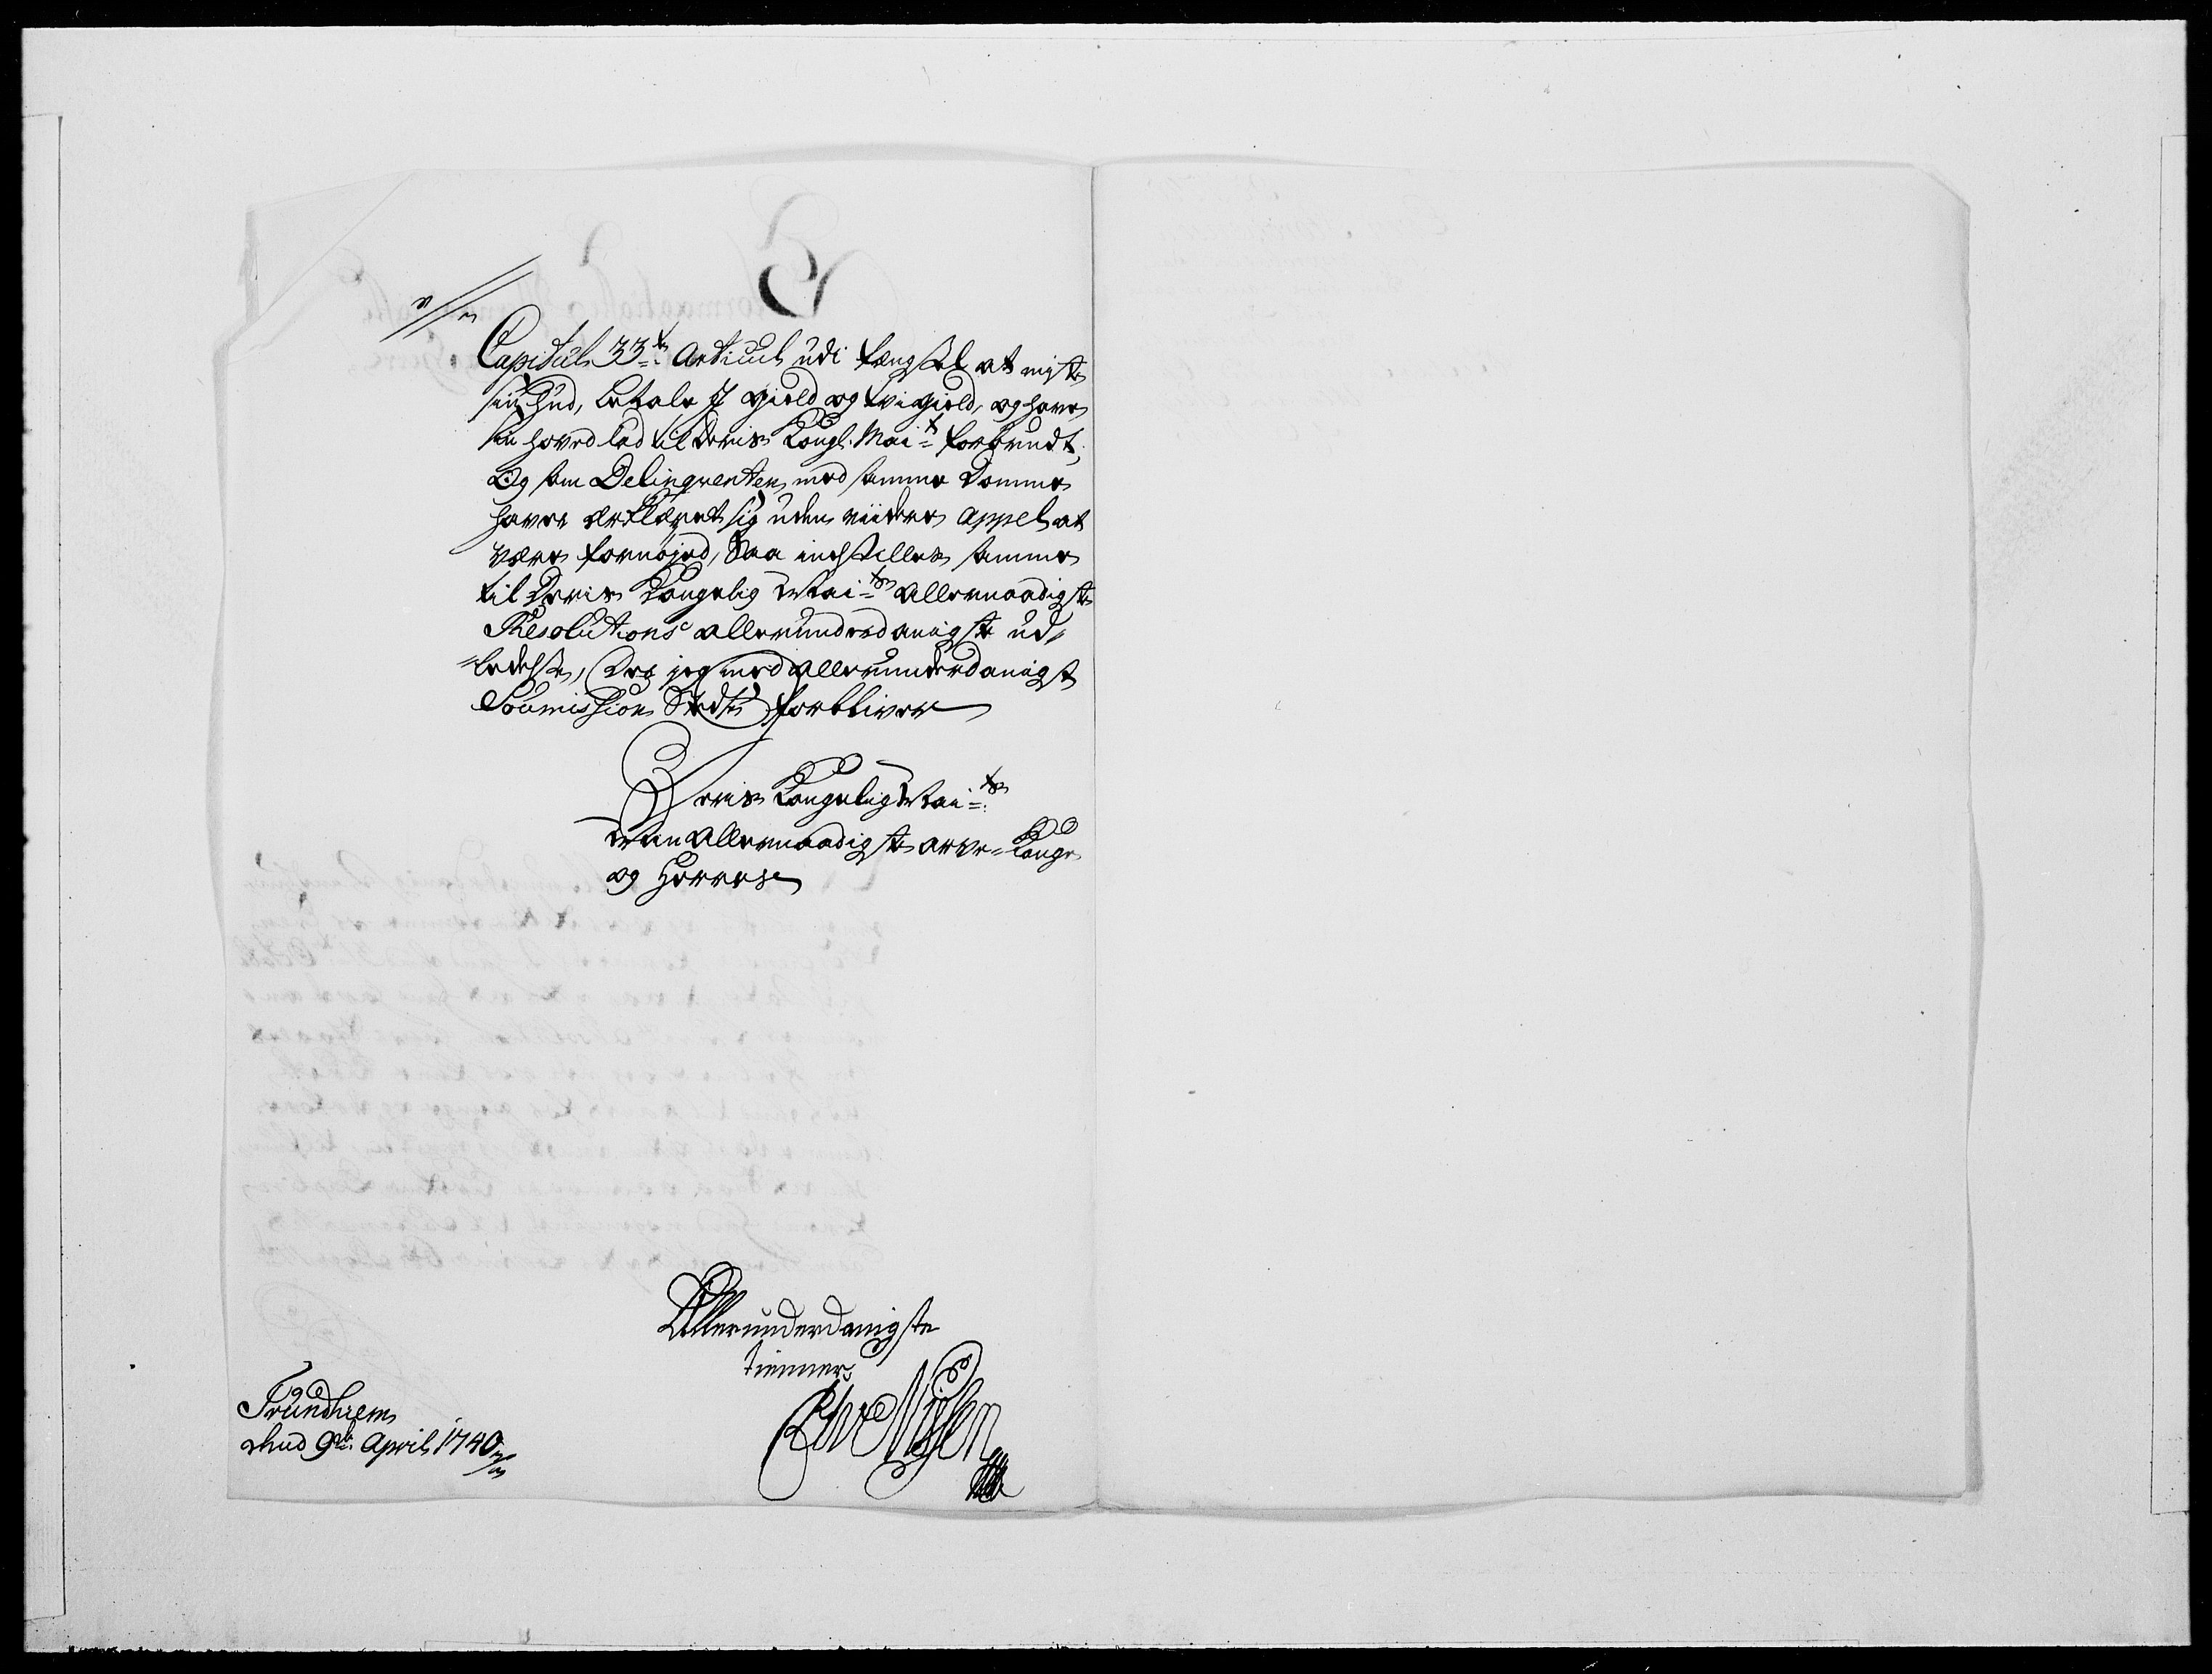 Capitul 33te Articul udi fengsel at miste
sin Hud, betale J gield og tvigield, og have
sin hoved lod til Deris Kongl. Mait forbrudt,
Og som Delinqventen med samme Domme
haver erklæret sig uden viidere appel at
være fornøjed, Saa indstilles samme
til Deris Kongelig Maits Allernaadigste
Resolutions allerunderdanigste ud,
=ladelse, Der jeg med allerunderdanigst
Soumission Stedse forbliver
Deris Kongelig Maits
Min Allernaadigste arve-Konge
og Herres
Allerunderdanigste
tienner
Trundhiem
dend 9de April 1740